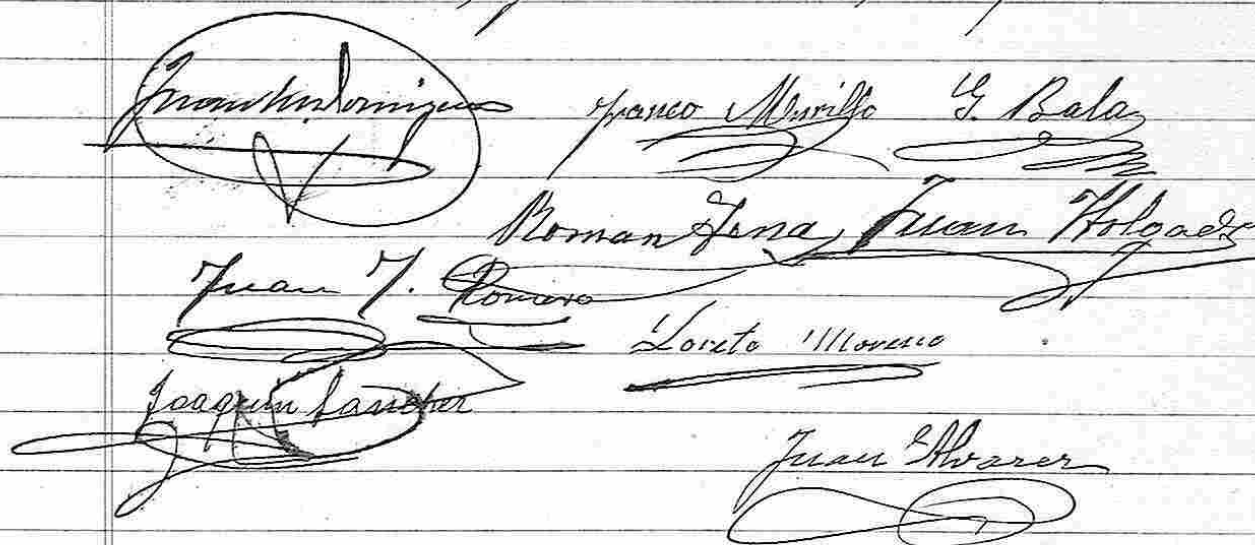 Franco Murillo G. Bala
Roman Juan Holgado
Juan J. Romero
Loreto Moreno
Joaquin Sanchez
Juan Alvarez